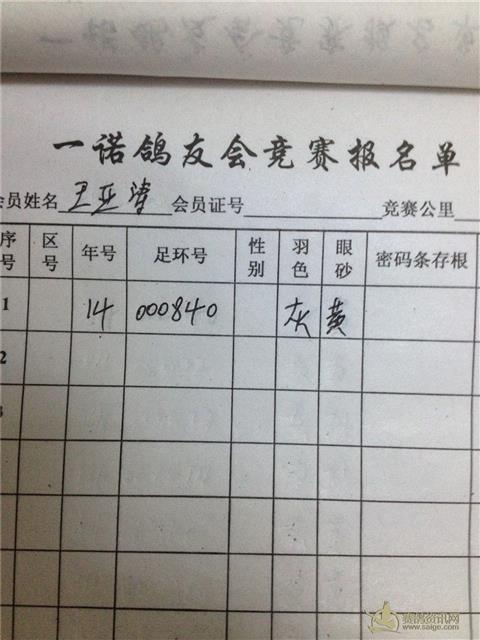 一诺鸽友会竞赛报名单
会员姓名 王亚涛 会员证号 竞赛公里
序号 区号 年号 足环号 性别 羽色 眼砂 密码条存根
1 14 000840 灰 黄
2
3
赛鸽资讯网
www.saige.com